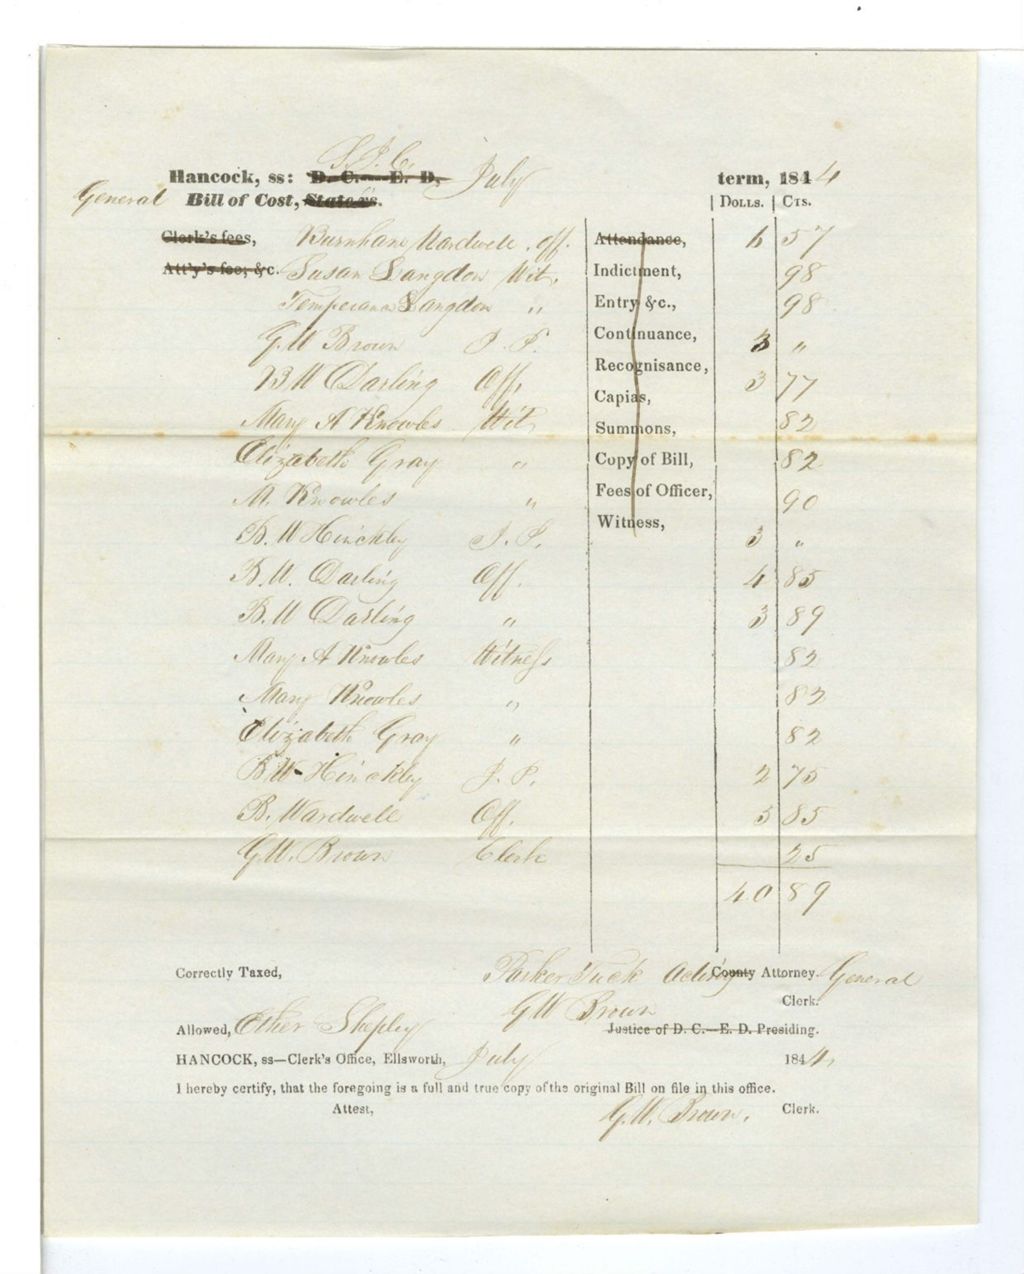 S. J. C.
Hancock, ss: D. C.—E. D, July term, 1844
General Bill of Cost, State vs.
DOLLS. | CTS.
Clerk's fees, Burnham Wardwell. Off. Attendance, 6 57
Att'y's fee, &c. Susan Langdon Wit, Indictment, 98
Langdon " Entry &c., 98
G. W Brown J. P. Continuance, 3 "
B W Darling Off, Recognisance, 3 77
Capias,
Mary A Knowles Wit, Summons, 82
Elizabeth Gray " Copy of Bill, 82
M. Knowles " Fees of Officer, 90
Witness,
B. W Hinckley J. P. 3 "
B. W. Darling Off. 4 85
B. W Darling " 3 89
Mary A Knowles Witness 82
Mary Knowles " 82
Elizabeth Gray " 82
B. W. Hinckley J. P. 2 75
B. Wardwell Off. 3 85
G. W. Brown Clerk 25
40 89
Correctly Taxed, Parker Tuck Acting County Attorney. General
G W Brown Clerk.
Allowed, Ether Shepley Justice of D. C.—E. D. Presiding.
HANCOCK, ss—Clerk's Office, Ellsworth, July 1844,
I hereby certify, that the foregoing is a full and true copy of the original Bill on file in this office.
Attest, G. W. Brown. Clerk.